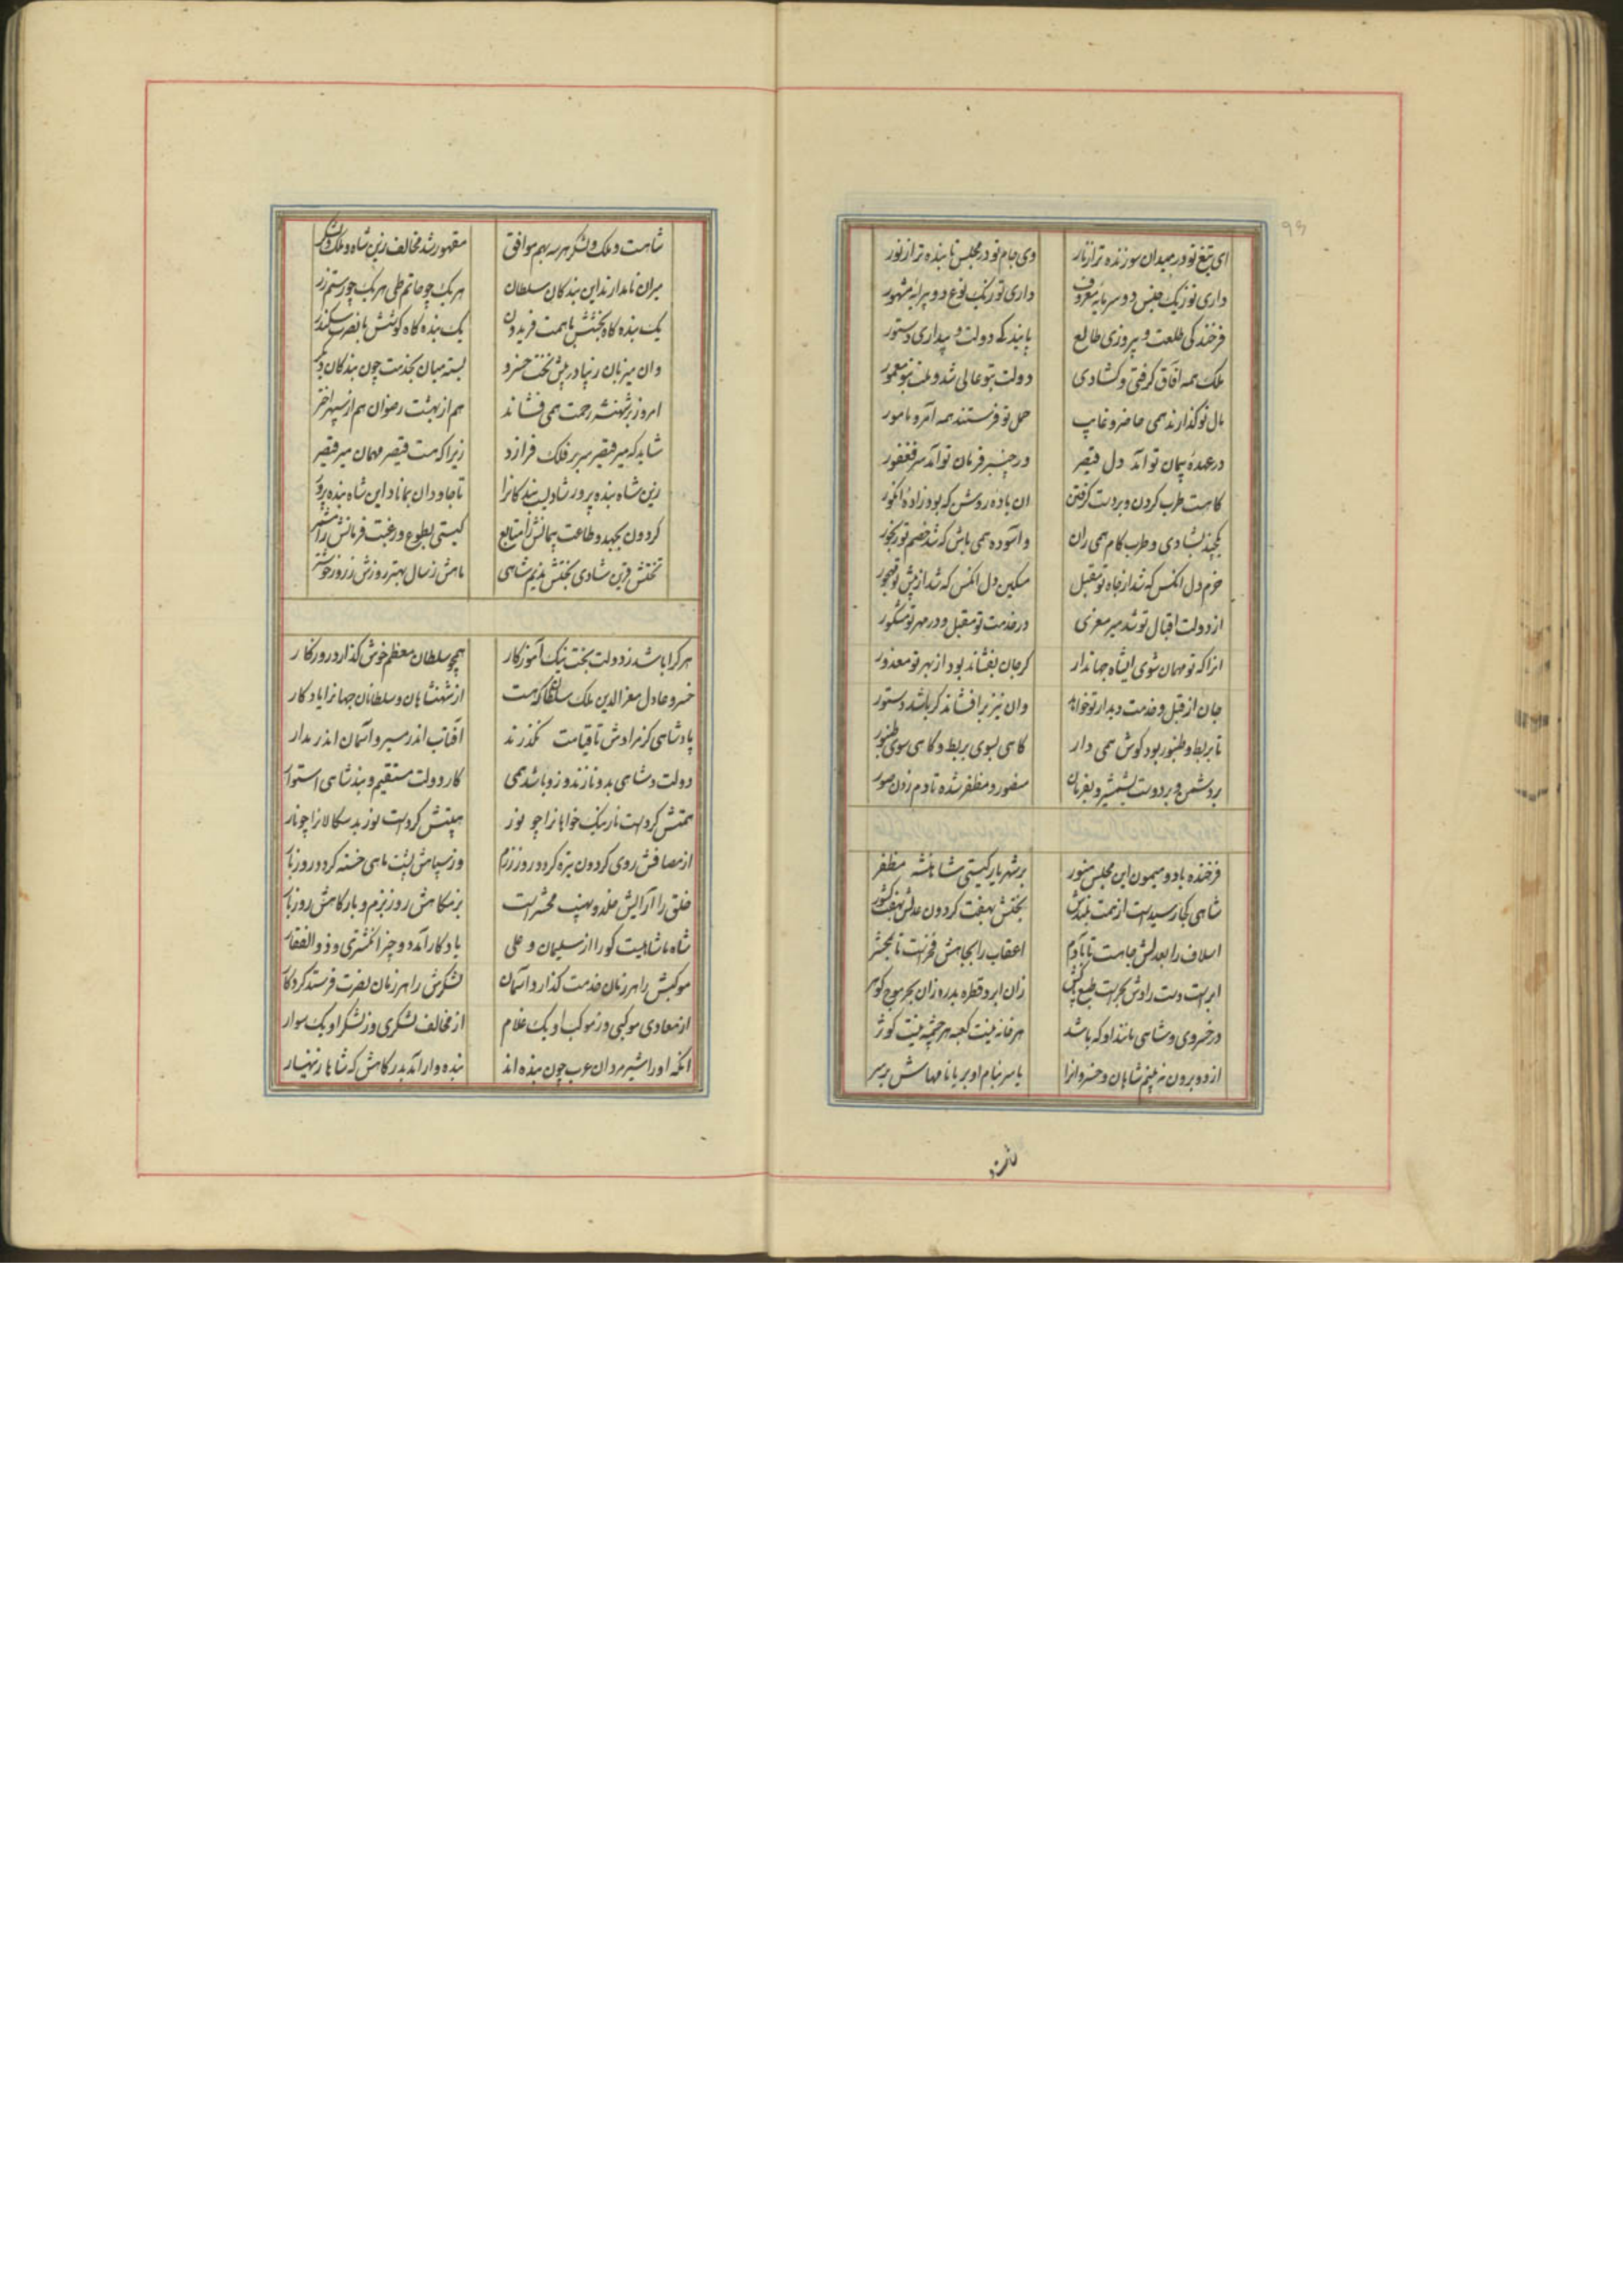 ای تیغ تو در میدان سوزنده تر از نار وی جام تو در مجلس تابنده تر از نور
داری تو ز یک جنس دو سرمایه معروف داری تو ز یک نوع دو پیرایه مشهور
فرخندگی طلعت و پیروزی طالع پایندگی دولت و بیداری دستور
ملک همه آفاق گرفتی و گشادی دولت بتو عالی شد و ملت بتو معمور
مال تو گذارند همی حاضر و غایب حمل تو فرستند همه آمر و مامور
در عهده پیمان تو آمد دل قیصر در چنبر فرمان تو آمد سر فغفور
کامت طرب کردن و بر دست گرفتن ان باده روشن که بود زاده انگور
یکچند بشادی و طرب کام همی ران و آسوده همی باش که شد خصم تو رنجور
خرم دل انکس که شد از جاه تو مقبل مسکین دل انکس که شد از پیش تو مهجور
از دولت اقبال تو شد میر معزی در خدمت تو مقبل و در مهر تو مشکور
انرا که تو مهمان شوی ایشاه جهاندار گر جان بفشاند بود از بهر تو معذور
جان از قبل و خدمت دیدار تو خواهد وان نیز برافشاند گر باشد دستور
تا بربط و طنبور بود گوش همی دار گاهی بسوی بربط و گاهی سوی طنبور
بر دشمن و بر دوست بشمشیر و بفرمان منصور و مظفر شده تا دم زدن صور
فرخنده باد و میمون این مجلس منور بر شهریار گیتی شاهنشه مظفر
شاهی کجا رسیدست از همت بلندش بختش بهفت گردون عدلش بهفت کشور
اسلاف را بعدلش جاهست تا بآدم اعقاب را بجاهش فخرست تا بمحشر
ابرست دست رادش بحرست طبع پاکش زان ابر و قطره بدره زان بحر موج گوهر
در خسروی و شاهی مانند او که باشد هر خانه نیست کعبه هر چشمه نیست کوثر
از دو برون نبینم شاهان و خسروانرا یا سر بنام او بر یا نامهاش بر سر
شاهست
شاهست و ملک و لشکر هر سه بهم موافق مقهور شد مخالف زین شاه و ملک و لشکر
میران نامدارند این بندگان سلطان هر یک چو حاتم طی هر یک چو رستم زر
یک بنده گاه بخشش با همت فریدون یک بنده گاه کوشش با نصرت سکندر
وان میزبان زیبا در پیش تخت خسرو بسته میان بخدمت چون بندگان دیگر
امروز بر شهنشه رحمت همی فشاند هم از بهشت رضوان هم از سپهر اختر
شاید که میر قیصر سر بر فلک فرازد زیرا که هست قیصر مهمان میر قیصر
زین شاه بنده پرور شادیست بندگانرا تا جاودان بماناد این شاه بنده پرور
گردون بجهد و طاعت پیمانش را متابع گیتی بطوع و رغبت فرمانش را مسخر
تختش قرین شادی بختش ندیم شاهی ماهش ز سال بهتر روزش ز روز خوشتر
هر کرا باشد ز دولت بخت نیک آموزگار همچو سلطان معظم خوش گذارد روزگار
خسرو عادل معزالدین ملک سلطان که هست از شهنشاهان و سلطانان جهانرا یادگار
پادشاهی کز مرادش تا قیامت نگذرند آفتاب اندر مسیر و آسمان اندر مدار
دولت و شاهی بدو نازند و زو باشد همی کار دولت مستقیم و بند شاهی استوار
همتش کردست نار نیک خواهانرا چو نور هیبتش کردست نور بدسگالانرا چو نار
از مصافش روی گردون تیره گردد روز رزم وز سپاهش پشت ماهی خسته گردد روز بار
خلق را آرایش خلد و نهیب محشرست بزمگاهش روز بزم و بارگاهش روز بار
شاه ما شاهیست کورا از سلیمان و علی یادگار آمد دو چیز انگشتری و ذوالفقار
موکبش را هر زمان خدمت گذارد آسمان لشکرش را هر زمان نصرت فرستد کردگار
از معادی موکبی وز موکب او یک غلام از مخالف لشکری وز لشکر او یک سوار
انکه او را شیرمردان عرب چون بنده اند بنده وار آمد بدرگاهش که شاها زینهار